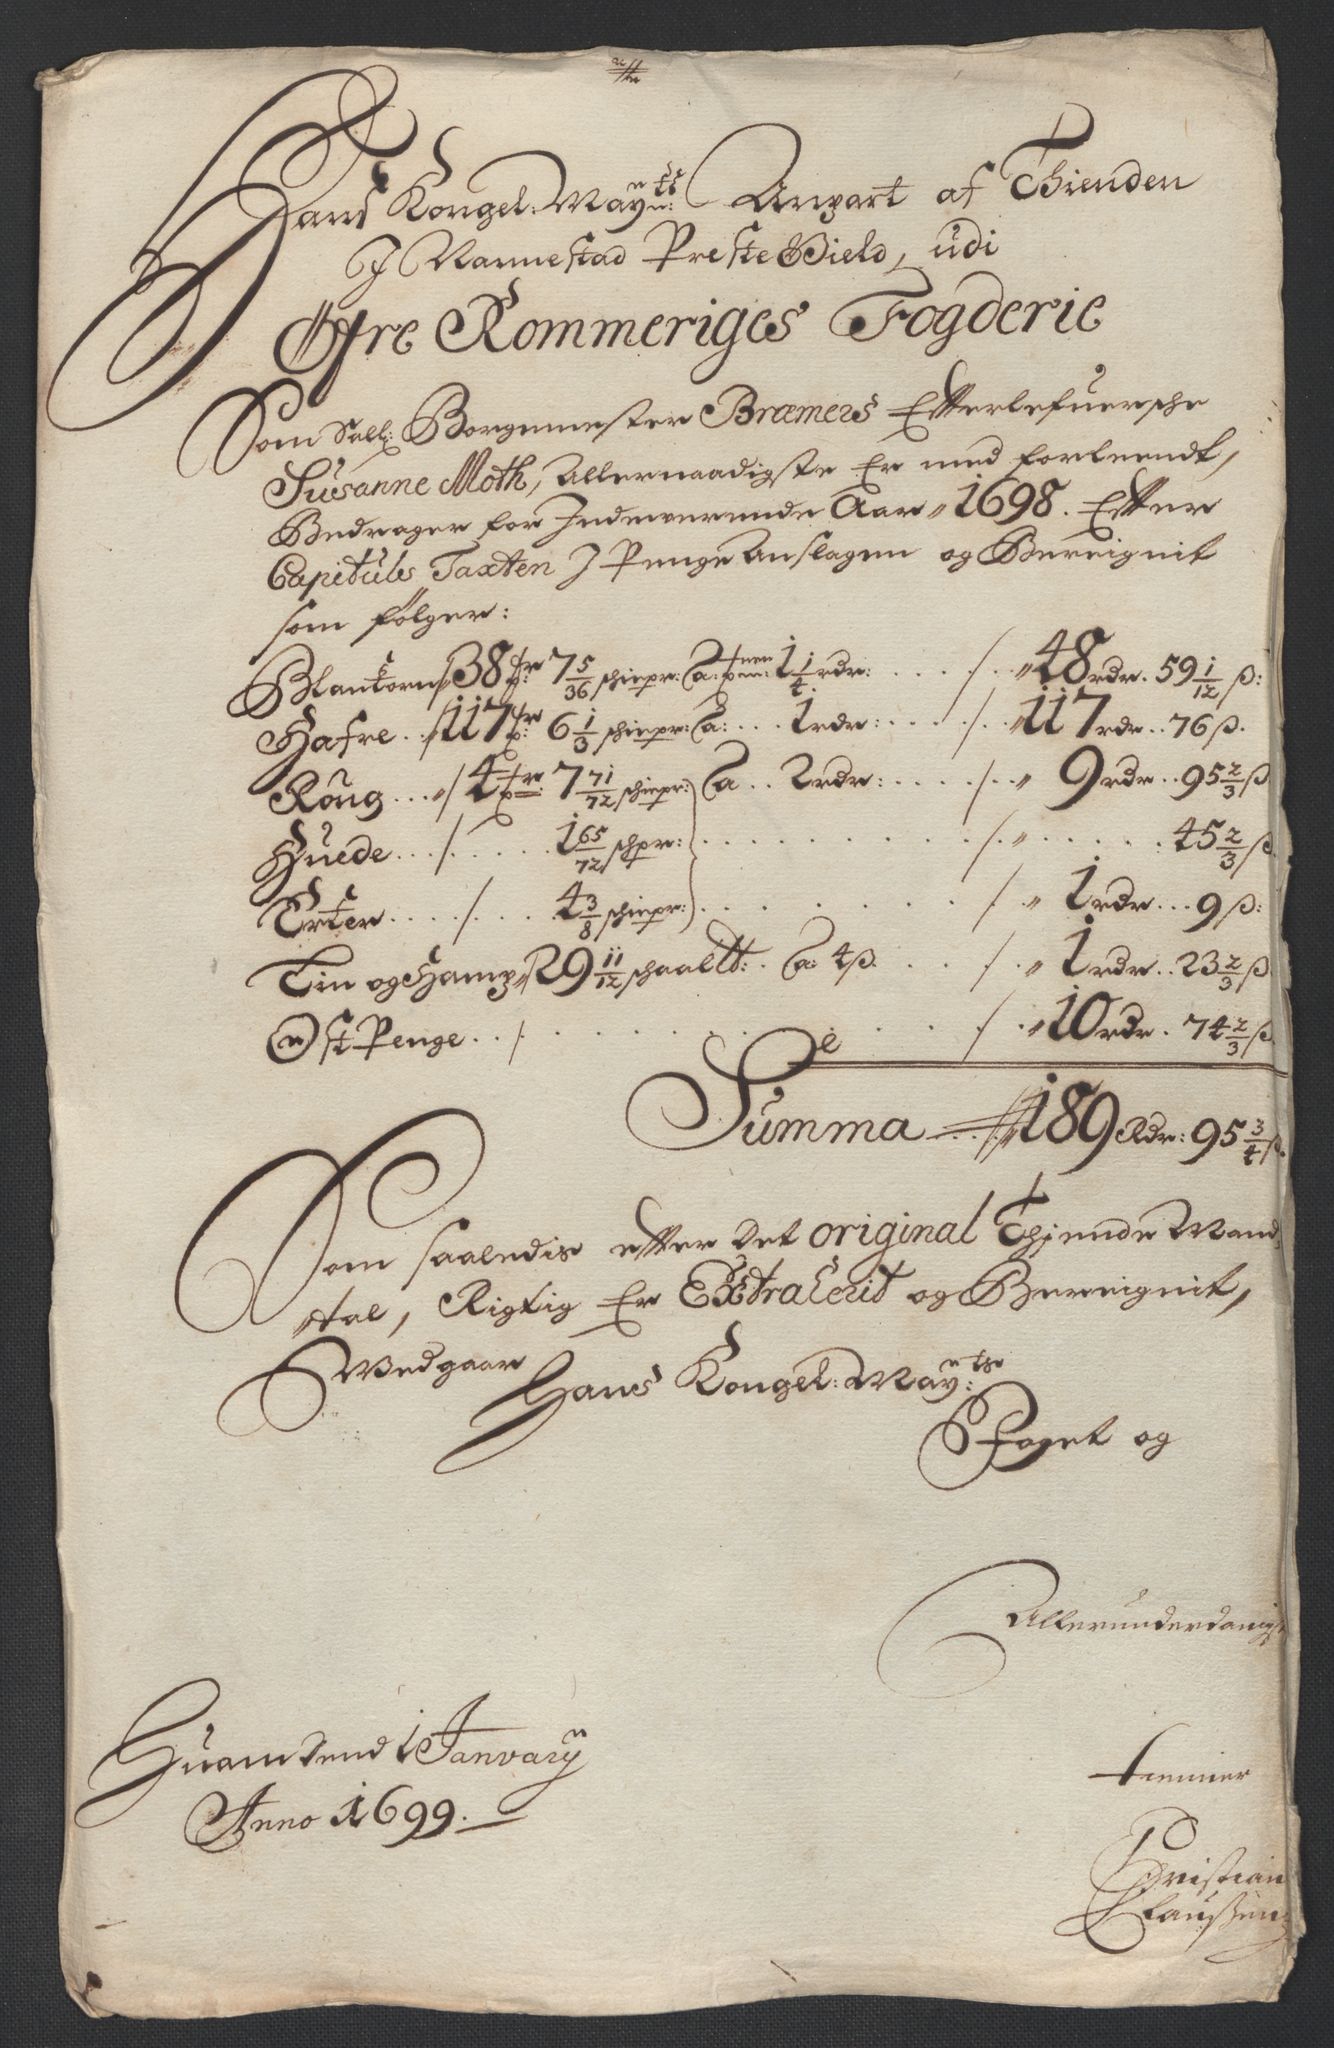 Hans Kongel: Mayts: Anpart af Thienden
I Nannestad Preste Gield, udi
Øfre Rommeriges Fogderie
Som Sall: Borgemester Bræmers Effterlefuersche
Susanne Moth, Allernaadigste Er med forleendt,
Bedrager for Indeverende Aar 1698. Effter
Capituls Taxten I Penge Anslagen og Bereignit
som følger:
Blantkorn 38 tr: 7 5/36 schiepr: a: tnen: 1 1/4 rdr: . . . . 48 rdr. 59 1/12 ß:
Hafre . . 117 tr: 6 1/3 schiepr: a: . . . 1 rdr: . . . . 117 rdr. . 76 ß.
Roug . . . 4 tr: 7 71/72 schiepr: a . . 2 rdr: . . . . 9 rdr . . 95 2/3 ß
Huede . . . . . . . 1 65/72 schpr: . . . . . . . . . 45 2/3 ß.
Erter . . . . . . . 4 3/8 schiepr: . . . . . . . 1 rdr . . . 9 ß:
Lin og Hamp 29 11/12 schaaltt: . a: 4 ß. . . . 1 rdr. . 23 2/3 ß.
Ost Penge . . . . . . . . . . . . 10 rdr. 74 2/3 ß
Summa 189 Rdr: 95 3/4 ß.
Som saaledis effter det original Thjende Mand
tal, Rigtig Er Extraherit og Bereignit,
Vedgaar
Hans Kongel: Mayts:
Foget og
Allerunderdanigst
tienner
Christian
Claussen
Huam dend 1 January
Anno 1699.